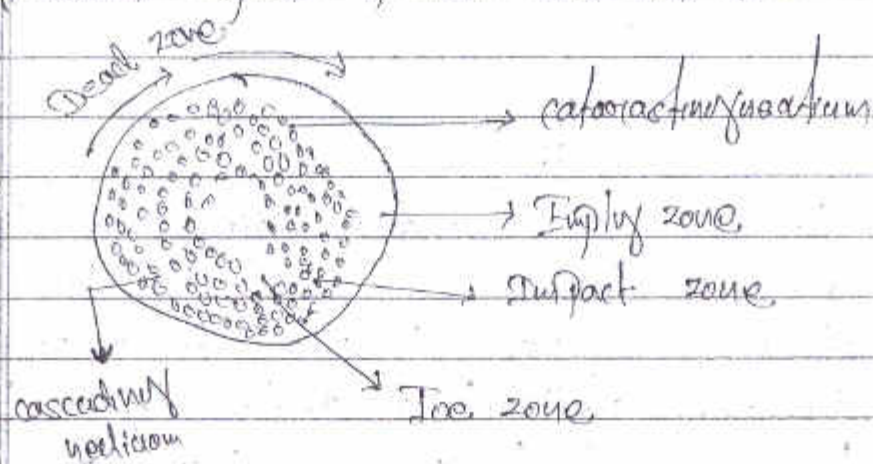 Dead zone
cataractingmedium
Empty zone.
Impact zone.
Toe zone.
cascading
medium